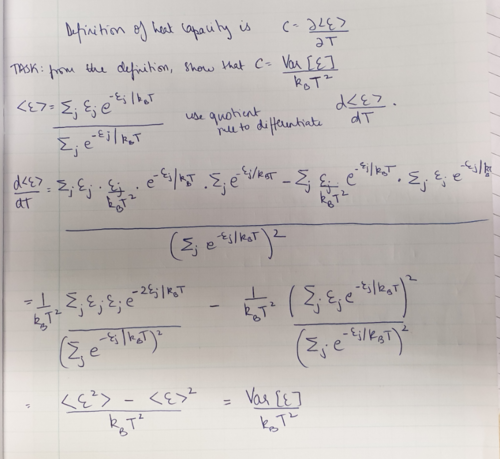 Definition of heat capacity is C = ∂<ε>/∂T
TASK: from the definition, show that C = Var[ε]/k_BT²
<ε> = Σ_j ε_j e^{-ε_j/k_BT} / Σ_j e^{-ε_j/k_BT} use quotient rule to differentiate d<ε>/dT.
d<ε>/dT = Σ_j ε_j · ε_j/k_BT² · e^{-ε_j/k_BT} · Σ_j e^{-ε_j/k_BT} − Σ_j ε_j/k_BT² e^{-ε_j/k_BT} · Σ_j ε_j e^{-ε_j/k_BT} / (Σ_j e^{-ε_j/k_BT})²
= 1/k_BT² Σ_j ε_j ε_j e^{-2ε_j/k_BT} / (Σ_j e^{-ε_j/k_BT})² − 1/k_BT² (Σ_j ε_j e^{-ε_j/k_BT})² / (Σ_j e^{-ε_j/k_BT})²
= <ε²> − <ε>² / k_BT² = Var[ε] / k_BT²